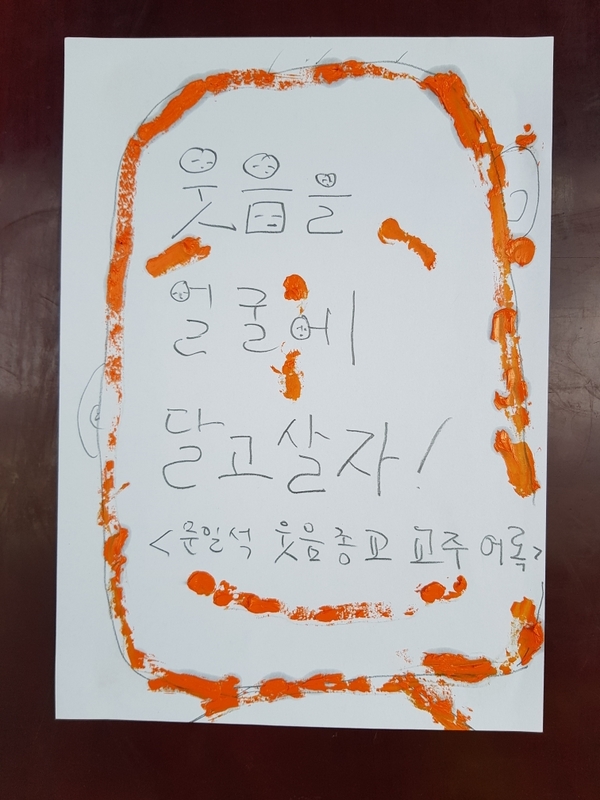 웃음을
얼굴에
달고살자!
<문일석 웃음종교 교주 어록>